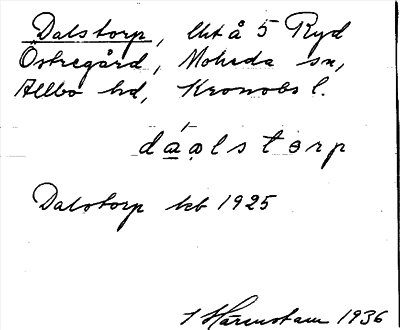 Dalstorp, lht å 5 Ryd
Östregård, Moheda sn,
Allbo hd, Kronobs l.
dáalstorp
Dalstorp kb 1925
Härenstam 1936